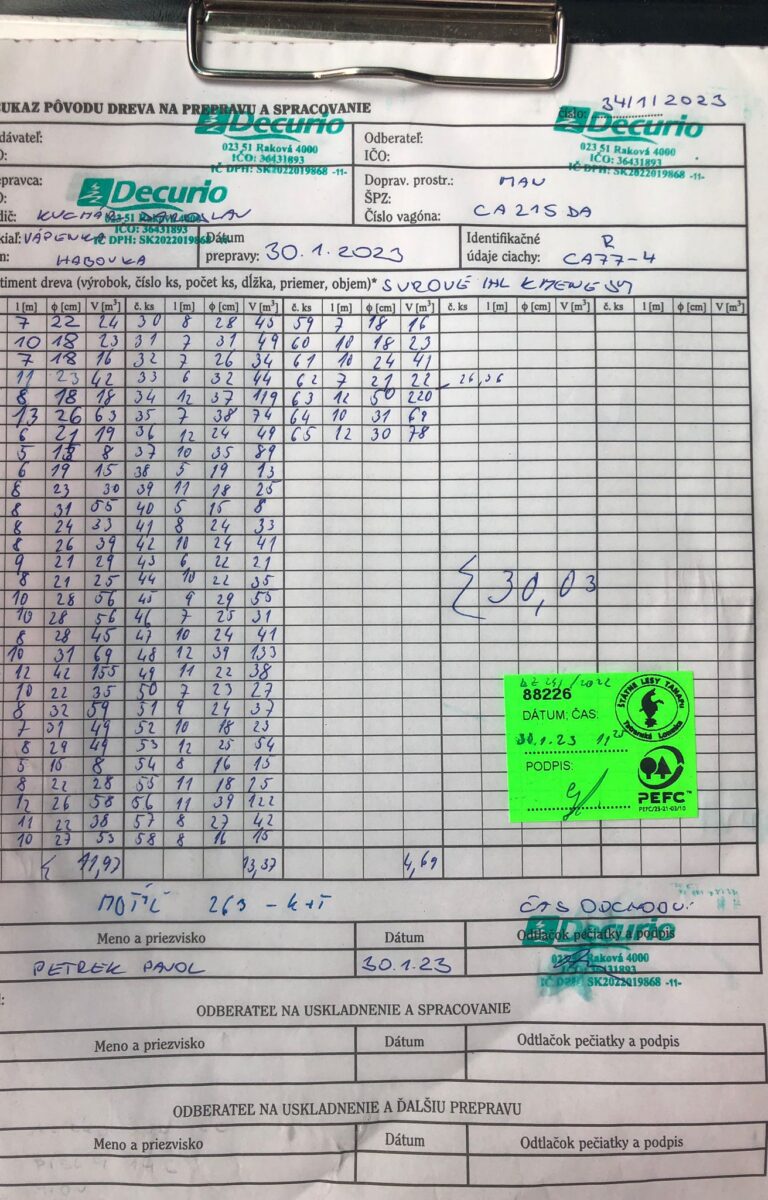 UKAZ PÔVODU DREVA NA PREPRAVU A SPRACOVANIE
číslo: 34/1/2023
Decurio
023 51 Raková 4000
IČO: 36431893
IČ DPH: SK2022019868 -11-
Decurio
023 51 Raková 4000
IČO: 36431893
IČ DPH: SK2022019868 -11-
dávateľ:
O:
Odberateľ:
IČO:
epravca:
O:
dič:
Decurio
023 51 Raková 4000
IČO: 36431893
IČ DPH: SK2022019868
Doprav. prostr.: MAN
ŠPZ:
Číslo vagóna: CA215DA
kiaľ: VÁPENKA
m: HABOVKA
Dátum
prepravy: 30.1.2023
Identifikačné R
údaje ciachy: CA77-4
timent dreva (výrobok, číslo ks, počet ks, dĺžka, priemer, objem)* SUROVÉ IHL KMENE
l [m] ϕ [cm] V [m³] č. ks l [m] ϕ [cm] V [m³] č. ks l [m] ϕ [cm] V [m³] č. ks l [m] ϕ [cm] V [m³] č. ks l [m] ϕ [cm] V [m³]
7 22 24 30 8 28 45 59 7 18 16
10 18 23 31 7 31 49 60 10 18 23
7 18 16 32 7 26 34 61 10 24 41
11 23 42 33 6 32 44 62 7 21 22 26,36
8 18 18 34 12 37 119 63 12 50 220
13 26 63 35 7 38 74 64 10 31 69
6 21 19 36 12 24 49 65 12 30 78
5 15 8 37 10 35 89
6 19 15 38 5 19 13
8 23 30 39 11 18 25
8 31 55 40 5 15 8
8 24 33 41 8 24 33
8 26 39 42 10 24 41
9 21 29 43 6 22 21
8 21 25 44 10 22 35
10 28 56 45 9 29 55
10 28 56 46 7 25 31
8 28 45 47 10 24 41
10 31 69 48 12 39 133
12 42 155 49 11 22 38
10 22 35 50 7 23 27
8 32 59 51 9 24 37
7 31 49 52 10 18 23
8 29 49 53 12 25 54
5 15 8 54 8 16 15
8 22 28 55 11 18 25
12 26 58 56 11 39 122
11 22 38 57 8 27 42
10 27 53 58 8 16 15
11,97 13,37 4,69
30,03
88226
DÁTUM; ČAS:
30.1.23 11 25
PODPIS:
ŠTÁTNE LESY TANAPU
Tatranská Lomnica
PEFC™
PEFC/23-21-03/10
263 - k+t
ČAS ODCHODU:
Meno a priezvisko Dátum Odtlačok pečiatky a podpis
PETREK PAVOL 30.1.23
Decurio
023 51 Raková 4000
IČ DPH: SK2022019868 -11-
ODBERATEĽ NA USKLADNENIE A SPRACOVANIE
Meno a priezvisko Dátum Odtlačok pečiatky a podpis
ODBERATEĽ NA USKLADNENIE A ĎALŠIU PREPRAVU
Meno a priezvisko Dátum Odtlačok pečiatky a podpis